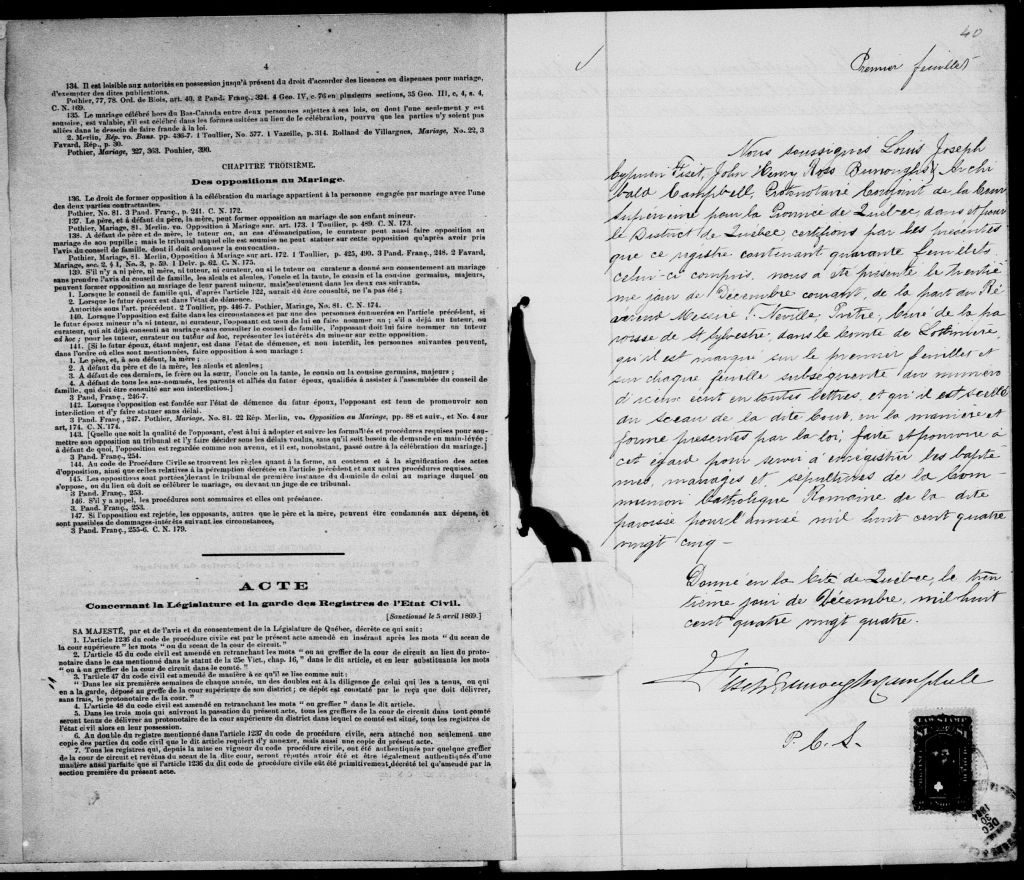 4
134. Il est loisible aux autorités en possession jusqu'à présent du droit d'accorder des licences ou dispenses pour mariage,
d'exempter des dites publications.
Pothier, 77, 78. Ord. de Blois, art. 40. 2 Pand. Franç., 324. 4 Geo. IV, c. 76 en plusieurs sections, 35 Geo. III, c, 4, s. 4,
C. N. 169.
135. Le mariage célébré hors du Bas-Canada entre deux personnes sujettes à ses lois, ou dont l'une seulement y est
soumise, est valable, s'il est célébré dans les formes usitées au lieu de la célébration, pourvu que les parties n'y soient pas
allées dans le dessein de faire fraude à la loi.
2. Merlin, Rép. vo. Bans. pp. 436-7. 1 Toullier, No. 577. 1 Vazeille, p. 314. Rolland de Villargues, Mariage, No. 22, 3
Favard, Rép., p. 30.
Pothier, Mariage, 327, 363. Pouhier, 396.
CHAPITRE TROISIÈME.
Des oppositions au Mariage.
136. Le droit de former opposition à la célébration du mariage appartient à la personne engagée par mariage avec l'une
des deux parties contractantes.
Pothier, No. 81. 3 Pand. Franç., p. 241. C. N. 172.
137. Le père, et à défaut du père, la mère, peut former opposition au mariage de son enfant mineur.
Pothier, Mariage, 81. Merlin. vo. Opposition à Mariage sur. art. 173. 1 Toullier, p. 489. C. N. 173.
138. A défaut de père et de mère, le tuteur ou, au cas d'émancipation, le curateur peut aussi faire opposition au
mariage de son pupille; mais le tribunal auquel elle est soumise ne peut statuer sur cette opposition qu'après avoir pris
l'avis du conseil de famille, dont il doit ordonner la convocation.
Pothier, Mariage, 81. Merlin, Opposition à Mariage sur art. 172. 1 Toullier, p. 425, 490. 3 Pand. Franç., 248. 2 Favard,
Mariage, sec. 2, § 1, No. 3, p. 59. 1 Delv. p. 62. C. N. 175.
139. S'il n'y a ni père, ni mère, ni tuteur, ni curateur, ou si le tuteur ou curateur a donné son consentement au mariage
sans prendre l'avis du conseil de famille, les aïeuls et aïeules, l'oncle et la tante, le cousin et la cousine germains, majeurs,
peuvent former opposition au mariage de leur parent mineur, mais seulement dans les deux cas suivants.
1. Lorsque le conseil de famille qui, d'après l'article 122, aurait dû être consulté, ne l'a pas été;
2. Lorsque le futur époux est dans l'état de démence.
Autorités sous l'art. précédent. 2 Toullier, pp. 446-7. Pothier, Mariage, No. 81. C. N. 174.
140. Lorsque l'opposition est faite dans les circonstances et par une des personnes énumérées en l'article précédent, si
le futur époux mineur n'a ni tuteur, ni curateur, l'opposant est tenu de lui en faire nommer un; s'il a déjà un tuteur, ou
curateur, qui ait déjà consenti au mariage sans consulter le conseil de famille, l'opposant doit lui faire nommer un tuteur
ad hoc; pour les tuteur, curateur ou tuteur ad hoc, représenter les intérêts du mineur sur cette opposition.
141. [Si le futur époux, étant majeur, est dans l'état de démence, et non interdit, les personnes suivantes peuvent,
dans l'ordre où elles sont mentionnées, faire opposition à son mariage:
1. Le père, et, à son défaut, la mère;
2. A défaut du père et de la mère, les aïeuls et aïeules;
3. A défaut de ces derniers, le frère ou la sœur, l'oncle ou la tante, le cousin ou la cousine germains, majeurs;
4. A défaut de tous les sus-nommés, les parents et alliés du futur époux, qualifiés à assister à l'assemblée du conseil de
famille, qui doit être consulté sur son interdiction.]
3 Pand. Franç., 246-7.
142. Lorsque l'opposition est fondée sur l'état de démence du futur époux, l'opposant est tenu de promouvoir son
interdiction et d'y faire statuer sans délai.
3 Pand. Franç., 247. Pothier, Mariage, No. 81. 22 Rép. Merlin, vo. Opposition au Mariage, pp. 88 et suiv., et No. 4 sur
art, 174. C. N. 174.
143. [Quelle que soit la qualité de l'opposant, c'est à lui à adopter et suivre les formalités et procédures requises pour sou-
mettre son opposition au tribunal et l'y faire décider sous les délais voulus, sans qu'il soit besoin de demande en main-levée;
à défaut de quoi, l'opposition est regardée comme non avenu, et il est, nonobstant, passé outre à la célébration du mariage.]
3 Pand. Franç., 254.
144. Au code de Procédure Civile se trouvent les règles quant à la forme, au contenu et à la signification des actes
d'opposition, ainsi que celles relatives à la péremption décrétée en l'article précédent et aux autres procédures requises.
145. Les oppositions sont portées devant le tribunal de première instance du domicile de celui au mariage duquel on
s'oppose, ou du lieu où doit se célébrer le mariage, ou devant un juge de ce tribunal.
3 Pand. Franç., 253.
146. S'il y a appel, les procédures sont sommaires et elles ont préséance.
3. Pand. Franç., 253.
147. Si l'opposition est rejetée, les opposants, autres que le père et la mère, peuvent être condamnés aux dépens, et
sont passibles de dommages-intérêts suivant les circonstances,
3 Pand. Franç., 255-6. C. N. 179.
ACTE
Concernant la Législature et la garde des Registres de l'Etat Civil.
[Sanctionné le 5 avril 1869.]
SA MAJESTÉ, par et de l'avis et du consentement de la Législature de Québec, décrète ce qui suit:
1. L'article 1236 du code de procédure civile est par le présent acte amendé en insérant après les mots "du sceau de
la cour supérieure" les mots "ou du sceau de la cour de circuit."
2. L'article 45 du code civil est amendé en retranchant les mots "ou au greffier de la cour de circuit au lieu du proto-
notaire dans le cas mentionné dans le statut de la 25e Vict., chap. 16," dans le dit article, et en leur substituants les mots
"ou à un greffier de la cour de circuit dans le comté."
3. l'article 47 du code civil est amendé de manière à ce qu'il se lise comme suit:
"Dans les six premières semaines de chaque année, un des doubles est à la diligence de celui qui les a tenus, ou qui
en a la garde, déposé au greffe de la cour supérieure de son district; ce dépôt est constaté par le reçu que doit délivrer,
sans frais, le protonotaire de la cour."
4. L'article 48 du code civil est amendé en retranchant les mots "ou greffier" dans le dit article.
5. Dans les trois mois qui suivront la passation du présent acte, tous les greffiers de la cour de circuit dans tout comté
seront tenus de délivrer au protonotaire de la cour supérieure du district dans lequel ce comté est situé, tous les registres de
l'état civil alors en leur possession.
6. Au double du registre mentionné dans l'article 1237 du code de procédure civile, sera attaché non seulement une
copie des parties du code civil que le dit article requiert d'y annexer, mais aussi une copie du présent acte.
7. Tous les registres qui, depuis la mise en vigueur du code procédure civile, ont été authentiqués par quelque greffier
de la cour de circuit et revêtus du sceau de la dite cour, seront réputés avoir été et être légalement authentiqués d'une
manière aussi parfaite que si l'article 1236 du dit code de procédure civile eût été primitivement décrété tel qu'amendé par la
section première du présent acte.
40
Premier feuillet
Nous soussignés Louis Joseph
Cyprien Fiset, John Henry Ross Burroughs & Archi
bald Campbell, Protonotaire Conjoint de la Cour
Supérieure pour la Province de Québec, dans et pour
le District de Québec certifions par les présentes
que ce registre contenant quarante feuillets
celui-ci compris, nous a été présenté le trentiè
me jour de Décembre courant, de la part du Ré
vérend Messire J. Neville, Prêtre, Curé de la pa
roisse de St Sylvestre, dans le comté de Lotbinière,
qu'il est marqué sur le premier feuillet et
sur chaque feuille subséquente du numéro
d'icelui écrit en toutes lettres, et qu'il est scellé
du sceau de la dite Cour, en la manière et
forme prescrites par la loi, faite et pourvue à
cet égard pour servir à enregistrer les baptê
mes, mariages et, sépultures de la Com
munion Catholique Romaine de la dite
paroisse pour l'année mil huit cent quatre
vingt cinq -
Donné en la Cité de Québec, le tren
tième jour de Décembre, mil huit
cent quatre vingt quatre.
Fiset Burroughs Campbell
P. C. S.
LAW STAMP
DEC
30
1884